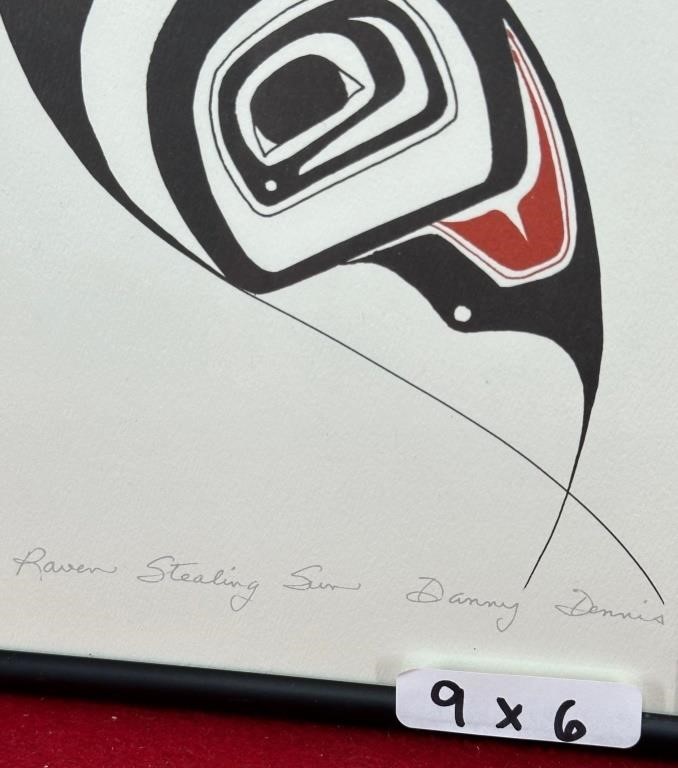 Raven Stealing Sun Danny Dennis
9 x 6